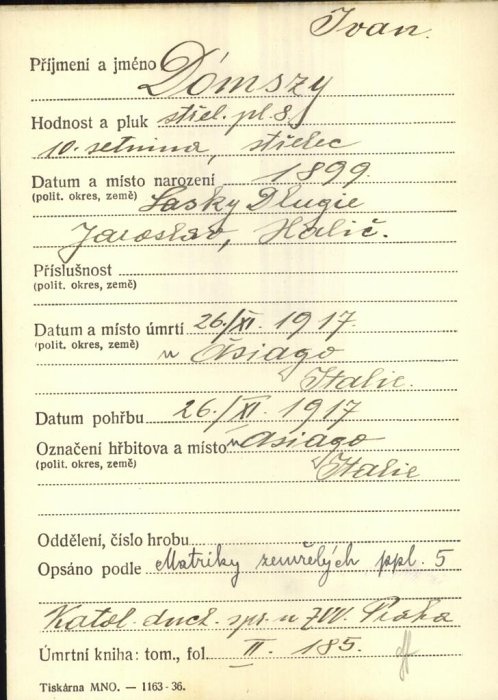 Ivan.
Příjmení a jméno Dómszy
Hodnost a pluk střel. pl. 8.
10. setnina, střelec
Datum a místo narození 1899.
(polit. okres, země) Lasky Dlugie
Jaroslav, Halič.
Příslušnost
(polit. okres, země)
Datum a místo úmrtí 26./XI. 1917.
(polit. okres, země) u Asiago
v Italie.
Datum pohřbu 26./XI. 1917
Označení hřbitova a místo u Asiago
(polit. okres, země) v Italie
Oddělení, číslo hrobu
Opsáno podle Matriky zemřelých ppl. 5
Katol. duch. spr. u ZVV. Praha
Úmrtní kniha: tom., fol. II. 185.
Tiskárna MNO. — 1163-36.